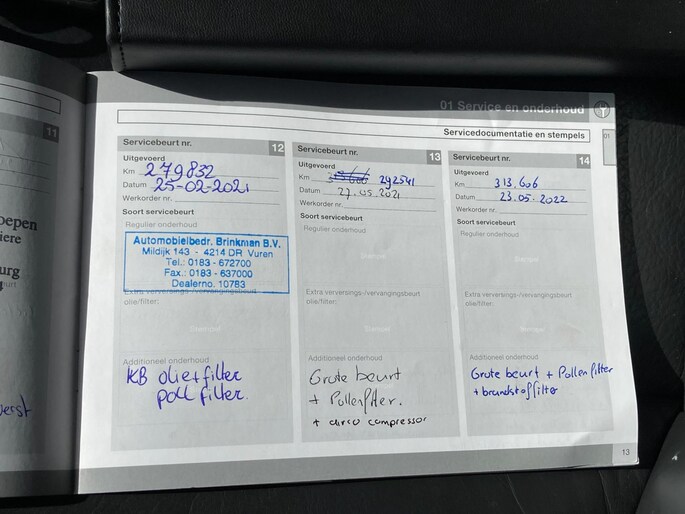 01 Service en onderhoud
Servicedocumentatie en stempels
01
11
Servicebeurt nr. 12
Uitgevoerd
Km 279832
Datum 25-02-2021
Werkorder nr.
Soort servicebeurt
Regulier onderhoud
Automobielbedr. Brinkman B.V.
Mildijk 143 - 4214 DR Vuren
Tel.: 0183 - 672700
Fax.: 0183 - 637000
Dealerno. 10783
Extra verversings-/vervangingsbeurt
olie/filter:
Stempel
Additioneel onderhoud
KB olie+filter
poll filter.
Servicebeurt nr. 13
Uitgevoerd
Km 292541
Datum 27.05.2021
Werkorder nr.
Soort servicebeurt
Regulier onderhoud
Stempel
Extra verversings-/vervangingsbeurt
olie/filter:
Stempel
Additioneel onderhoud
Grote beurt
+ Pollenfilter.
+ airco compressor
Servicebeurt nr. 14
Uitgevoerd
Km 313.606
Datum 23.05.2022
Werkorder nr.
Soort servicebeurt
Regulier onderhoud
Stempel
Extra verversings-/vervangingsbeurt
olie/filter:
Stempel
Additioneel onderhoud
Grote beurt + Pollenfilter
+ brandstoffilter
13